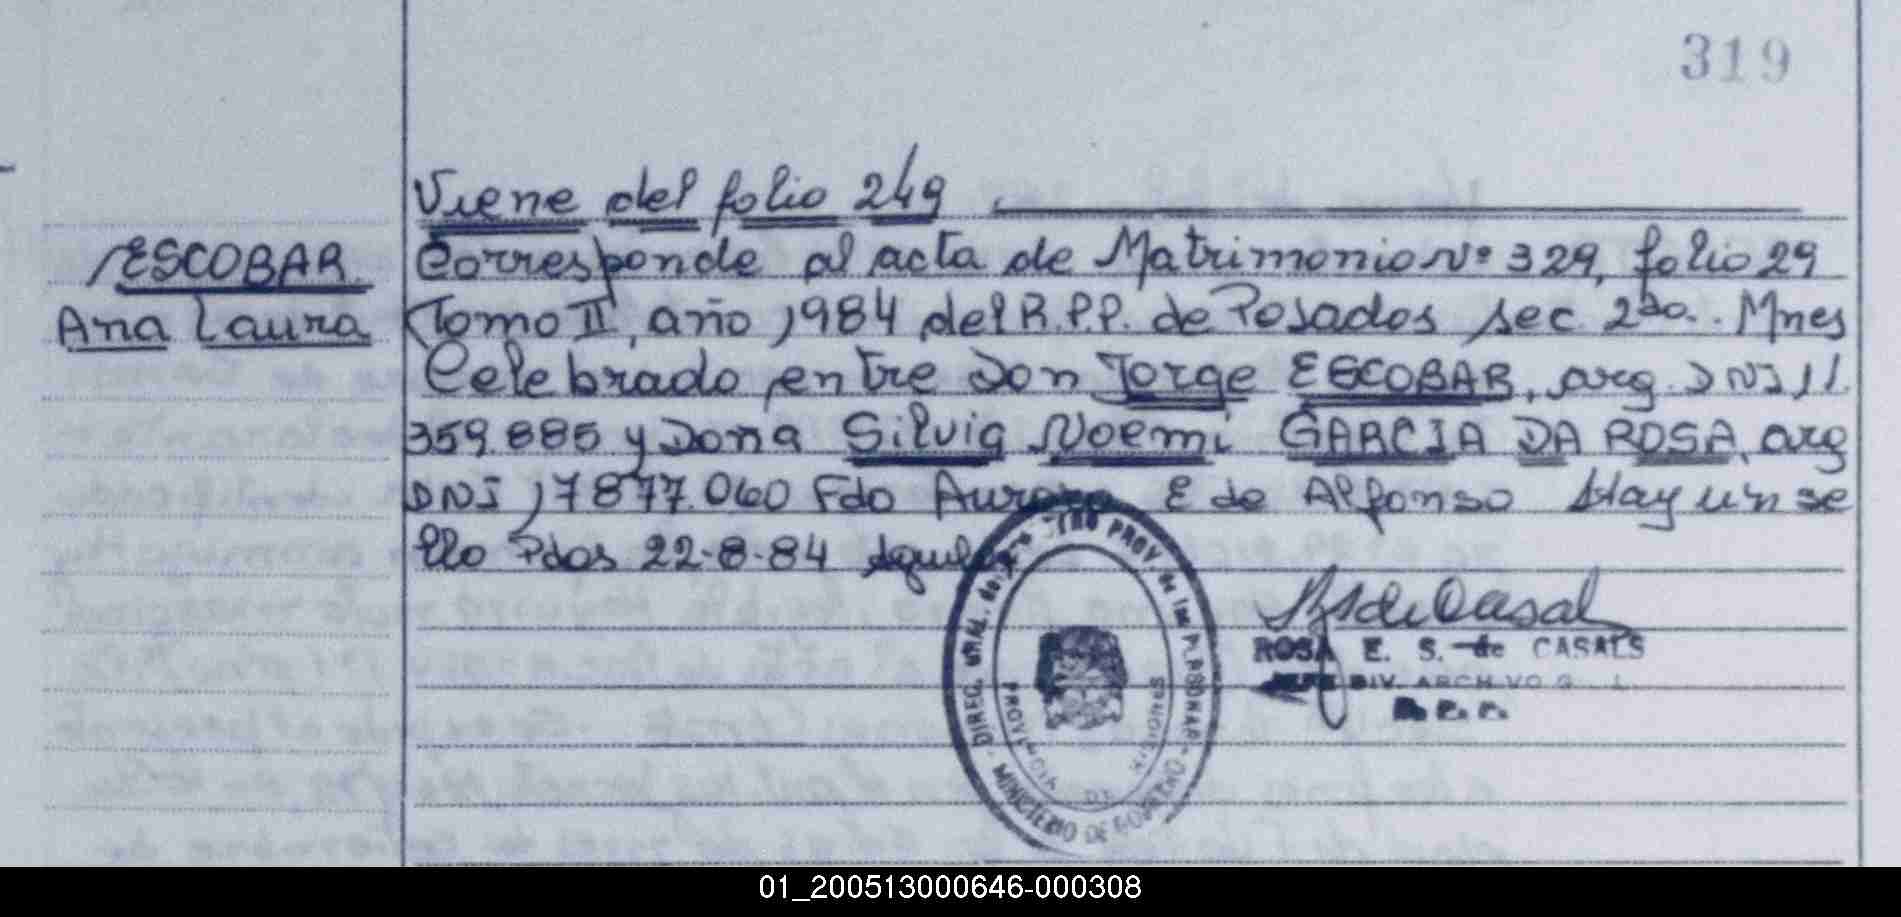 319
Viene del folio 249
ESCOBAR
Ana Laura
Corresponde al acta de Matrimonio Nº 329, folio 29
Tomo II, año 1984 del R.P.P. de Posadas sec 2da. Mnes
Celebrado entre Don Jorge ESCOBAR, arg. DNI 11.
359.885 y Dona Silvia Noemi GARCIA DA ROSA, arg
DNI 17877.060 Fdo Aurora E de Alfonso Hay un se
llo Pdos 22-8-84
ROSA E. S. de CASALS
DIV. ARCHIVO G
DIREC. GRAL. PROV. de las PERSONAS
MINISTERIO DE GOBIERNO
PROVINCIA DE MISIONES
01_200513000646-000308